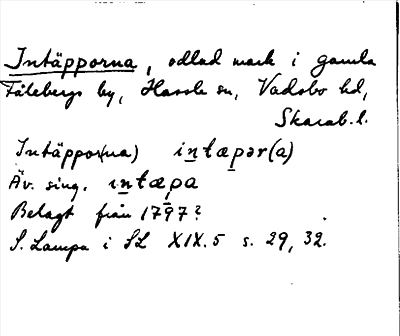 Intäpporna, odlad mark i gamla
Fåleberg by, Hassle sn, Vadsbo hd,
Skarab.l.
Intäppor(na) intæpər(a)
Äv. sing. intæpa
Belagt från 1797?
S. Lampa i SL XIX.5 s. 29, 32.